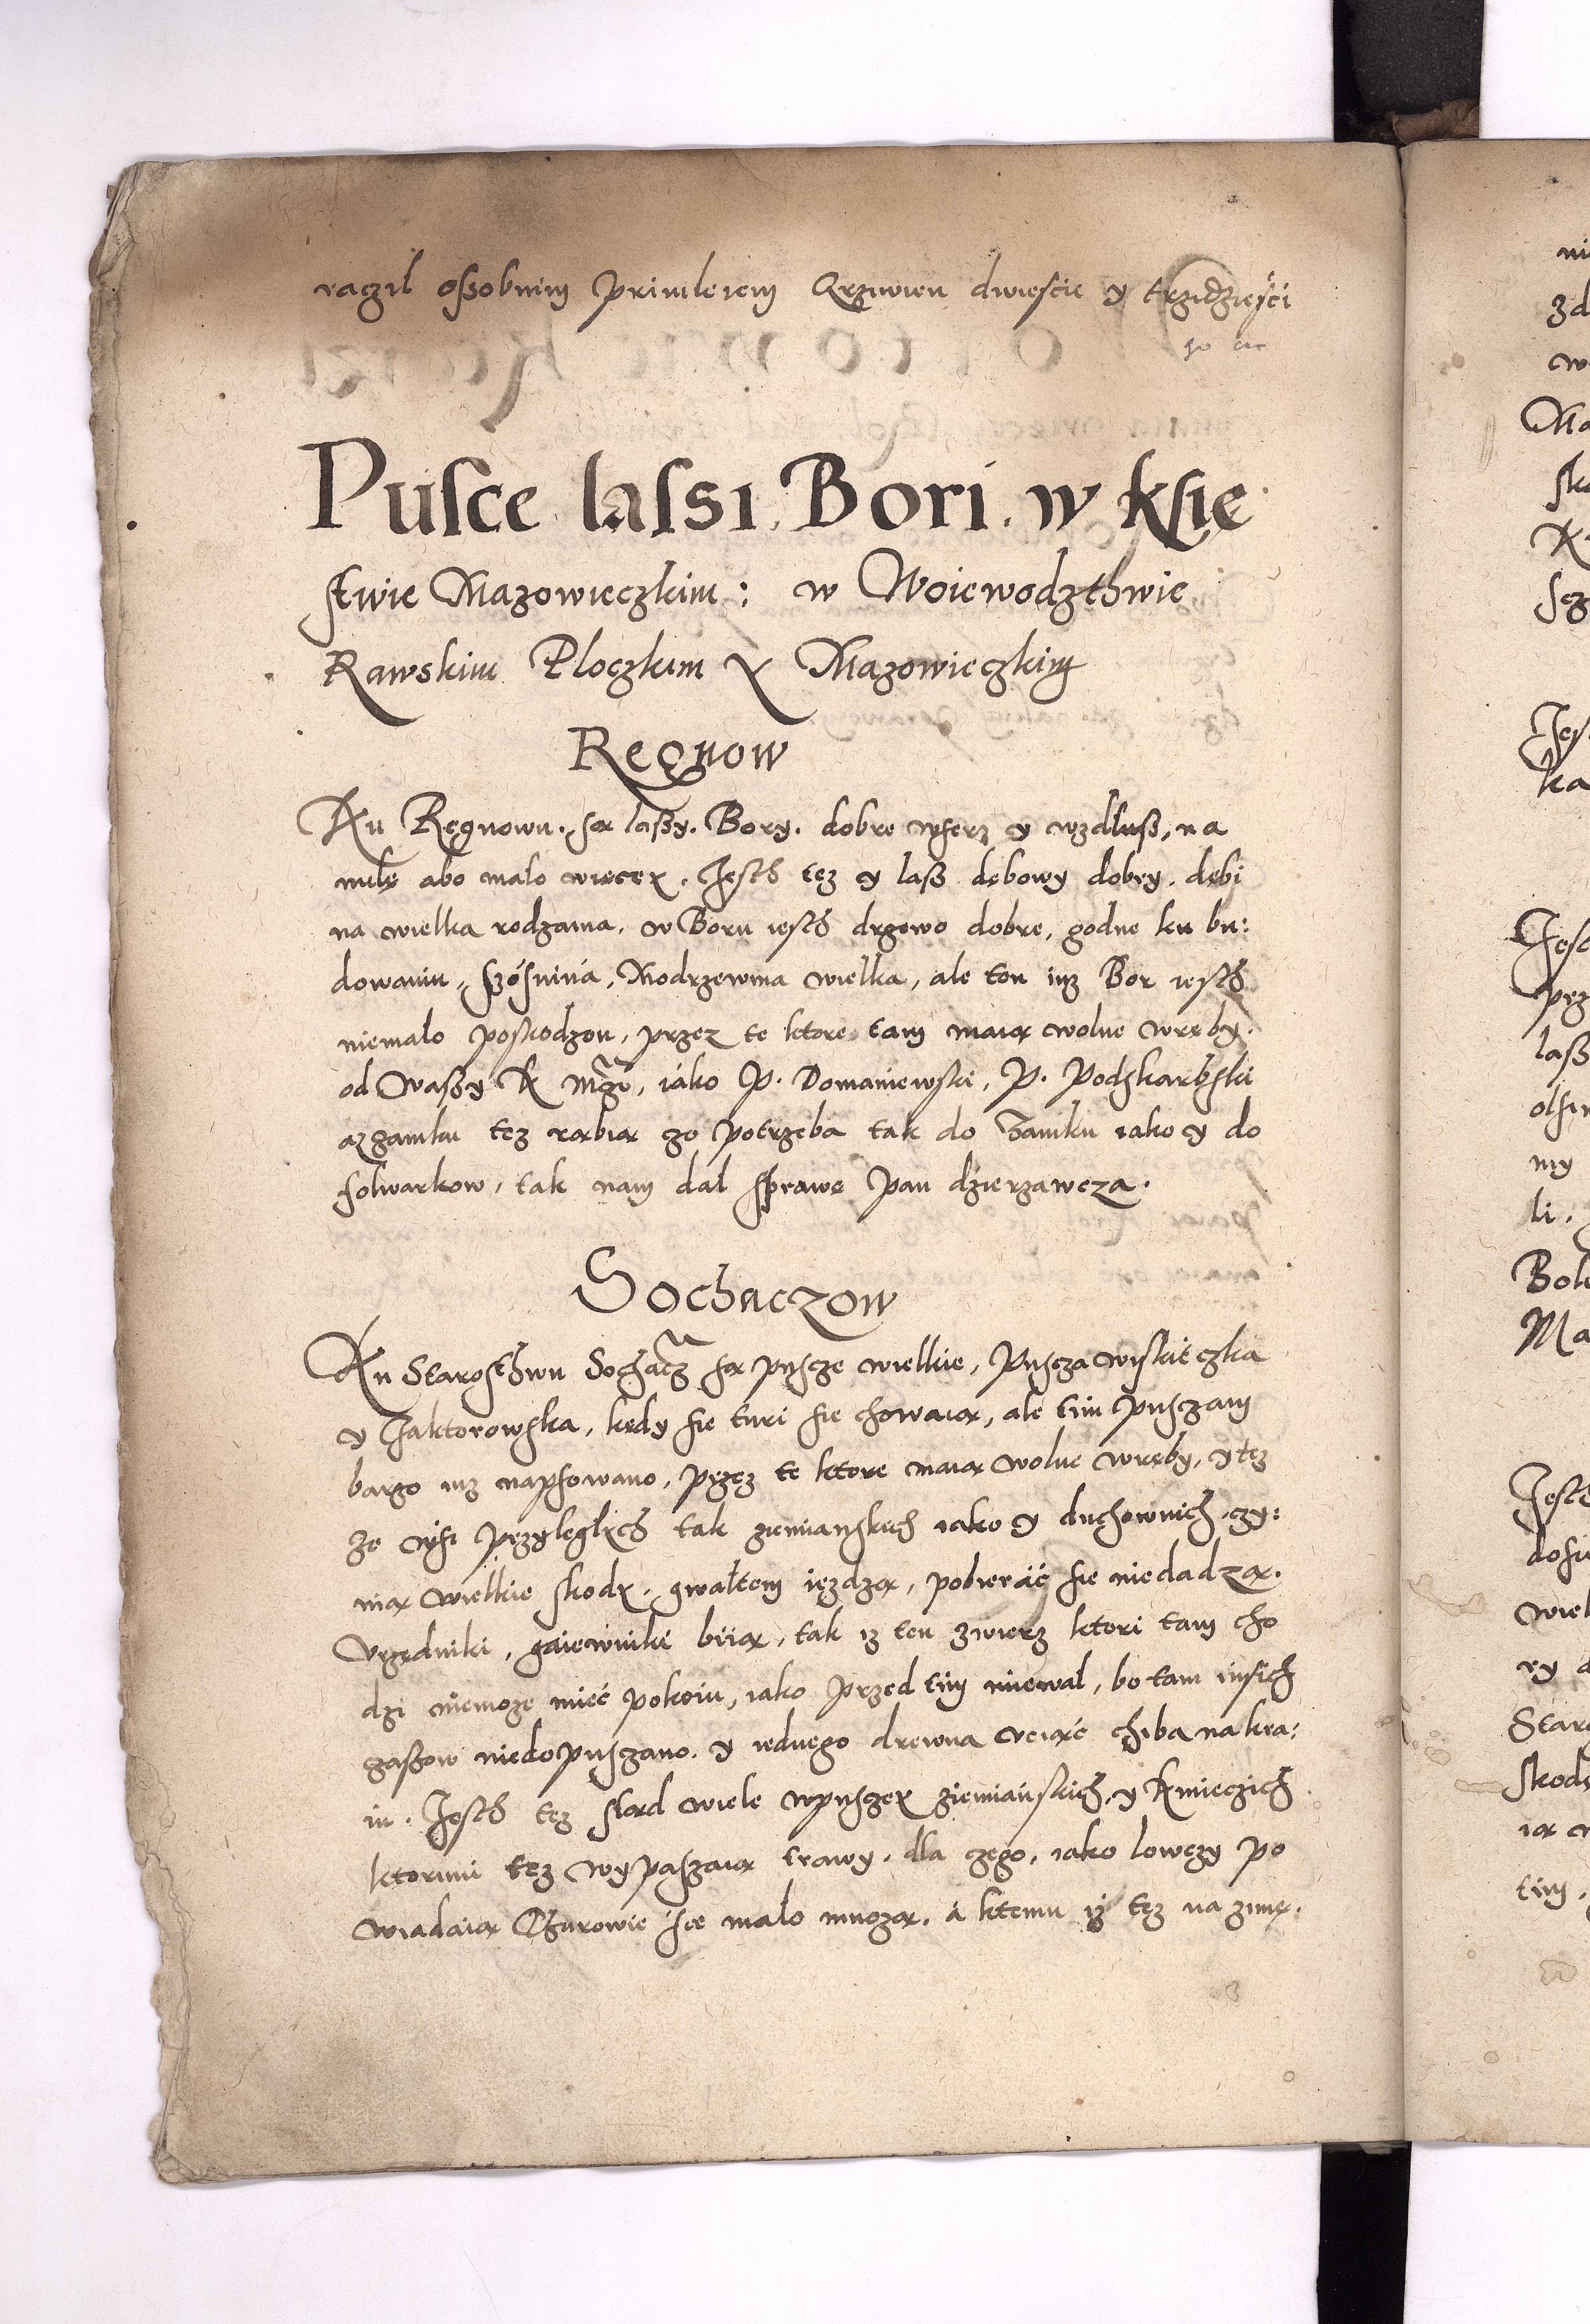 raczil ossobnim Priuileiem Grziwien dwiescie y trzidziesci
Pusce lassi Bori w księ
stwie Mazowieczkim: w Woiewodzthwie
Rawskim Ploczkim y Mazowieczkim
Regnow
Ku Regnowu. są lassy. Bory. dobre wserz y wzdluß, na
milę abo malo więcey. Jesth tez y laß dębowy dobry. dębi
na wielka rodzaina. w Boru iesth drzewo dobre, godne ku bu:
dowaniu, szósniná, Modrzewina wielka, ale ten iuz Bor iesth
niemalo poskodzon, przez te ktore tam maią wolne wręby.
od Waßy K Mczi, iáko P. Domaniewski, P. Podskarbski
a z zamku tez rąbią zo potrzeba tak do Zamku iako y do
folwarkow, tak nam dal sprawę Pan dzierzawcza.
Sochaczow
Ku Starosthwu Sochacz są puscze wielkie, Puscza wiskitczka
y Jaktorowska, kędy sie turi sie chowaią, ale tim Pusczam
barzo iuz napsowano, przez te ktore maią wolne wręby, y tez
ze wsi przyleglych tak ziemianskich iako y duchownich, czy:
nią wielkie skody, gwaltem iezdzą, pobieráć sie niedadzą.
Vrzędniki, gaiewniki biią, tak iz ten zwierz ktori tam cho
dzi niemoze miéć pokoiu, iako przed tim miewal, bo tam inßich
czaßow niedopusczano y iednego drewna vciąć chiba na kra:
iu. Jesth tez stad wiele wpusczey ziemiánskich y Kmieczich
ktorimi tez wypaszaią trawy. dla czego, iako lowczy po
wiadaią Thurowie sie malo mnozą. á ktemu iz tez na zimę.